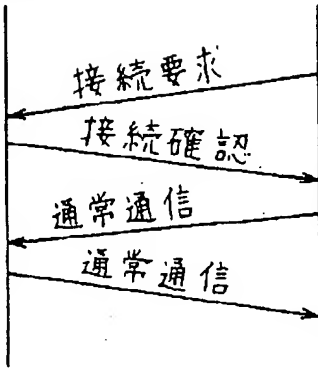 接続要求
接続確認
通常通信
通常通信